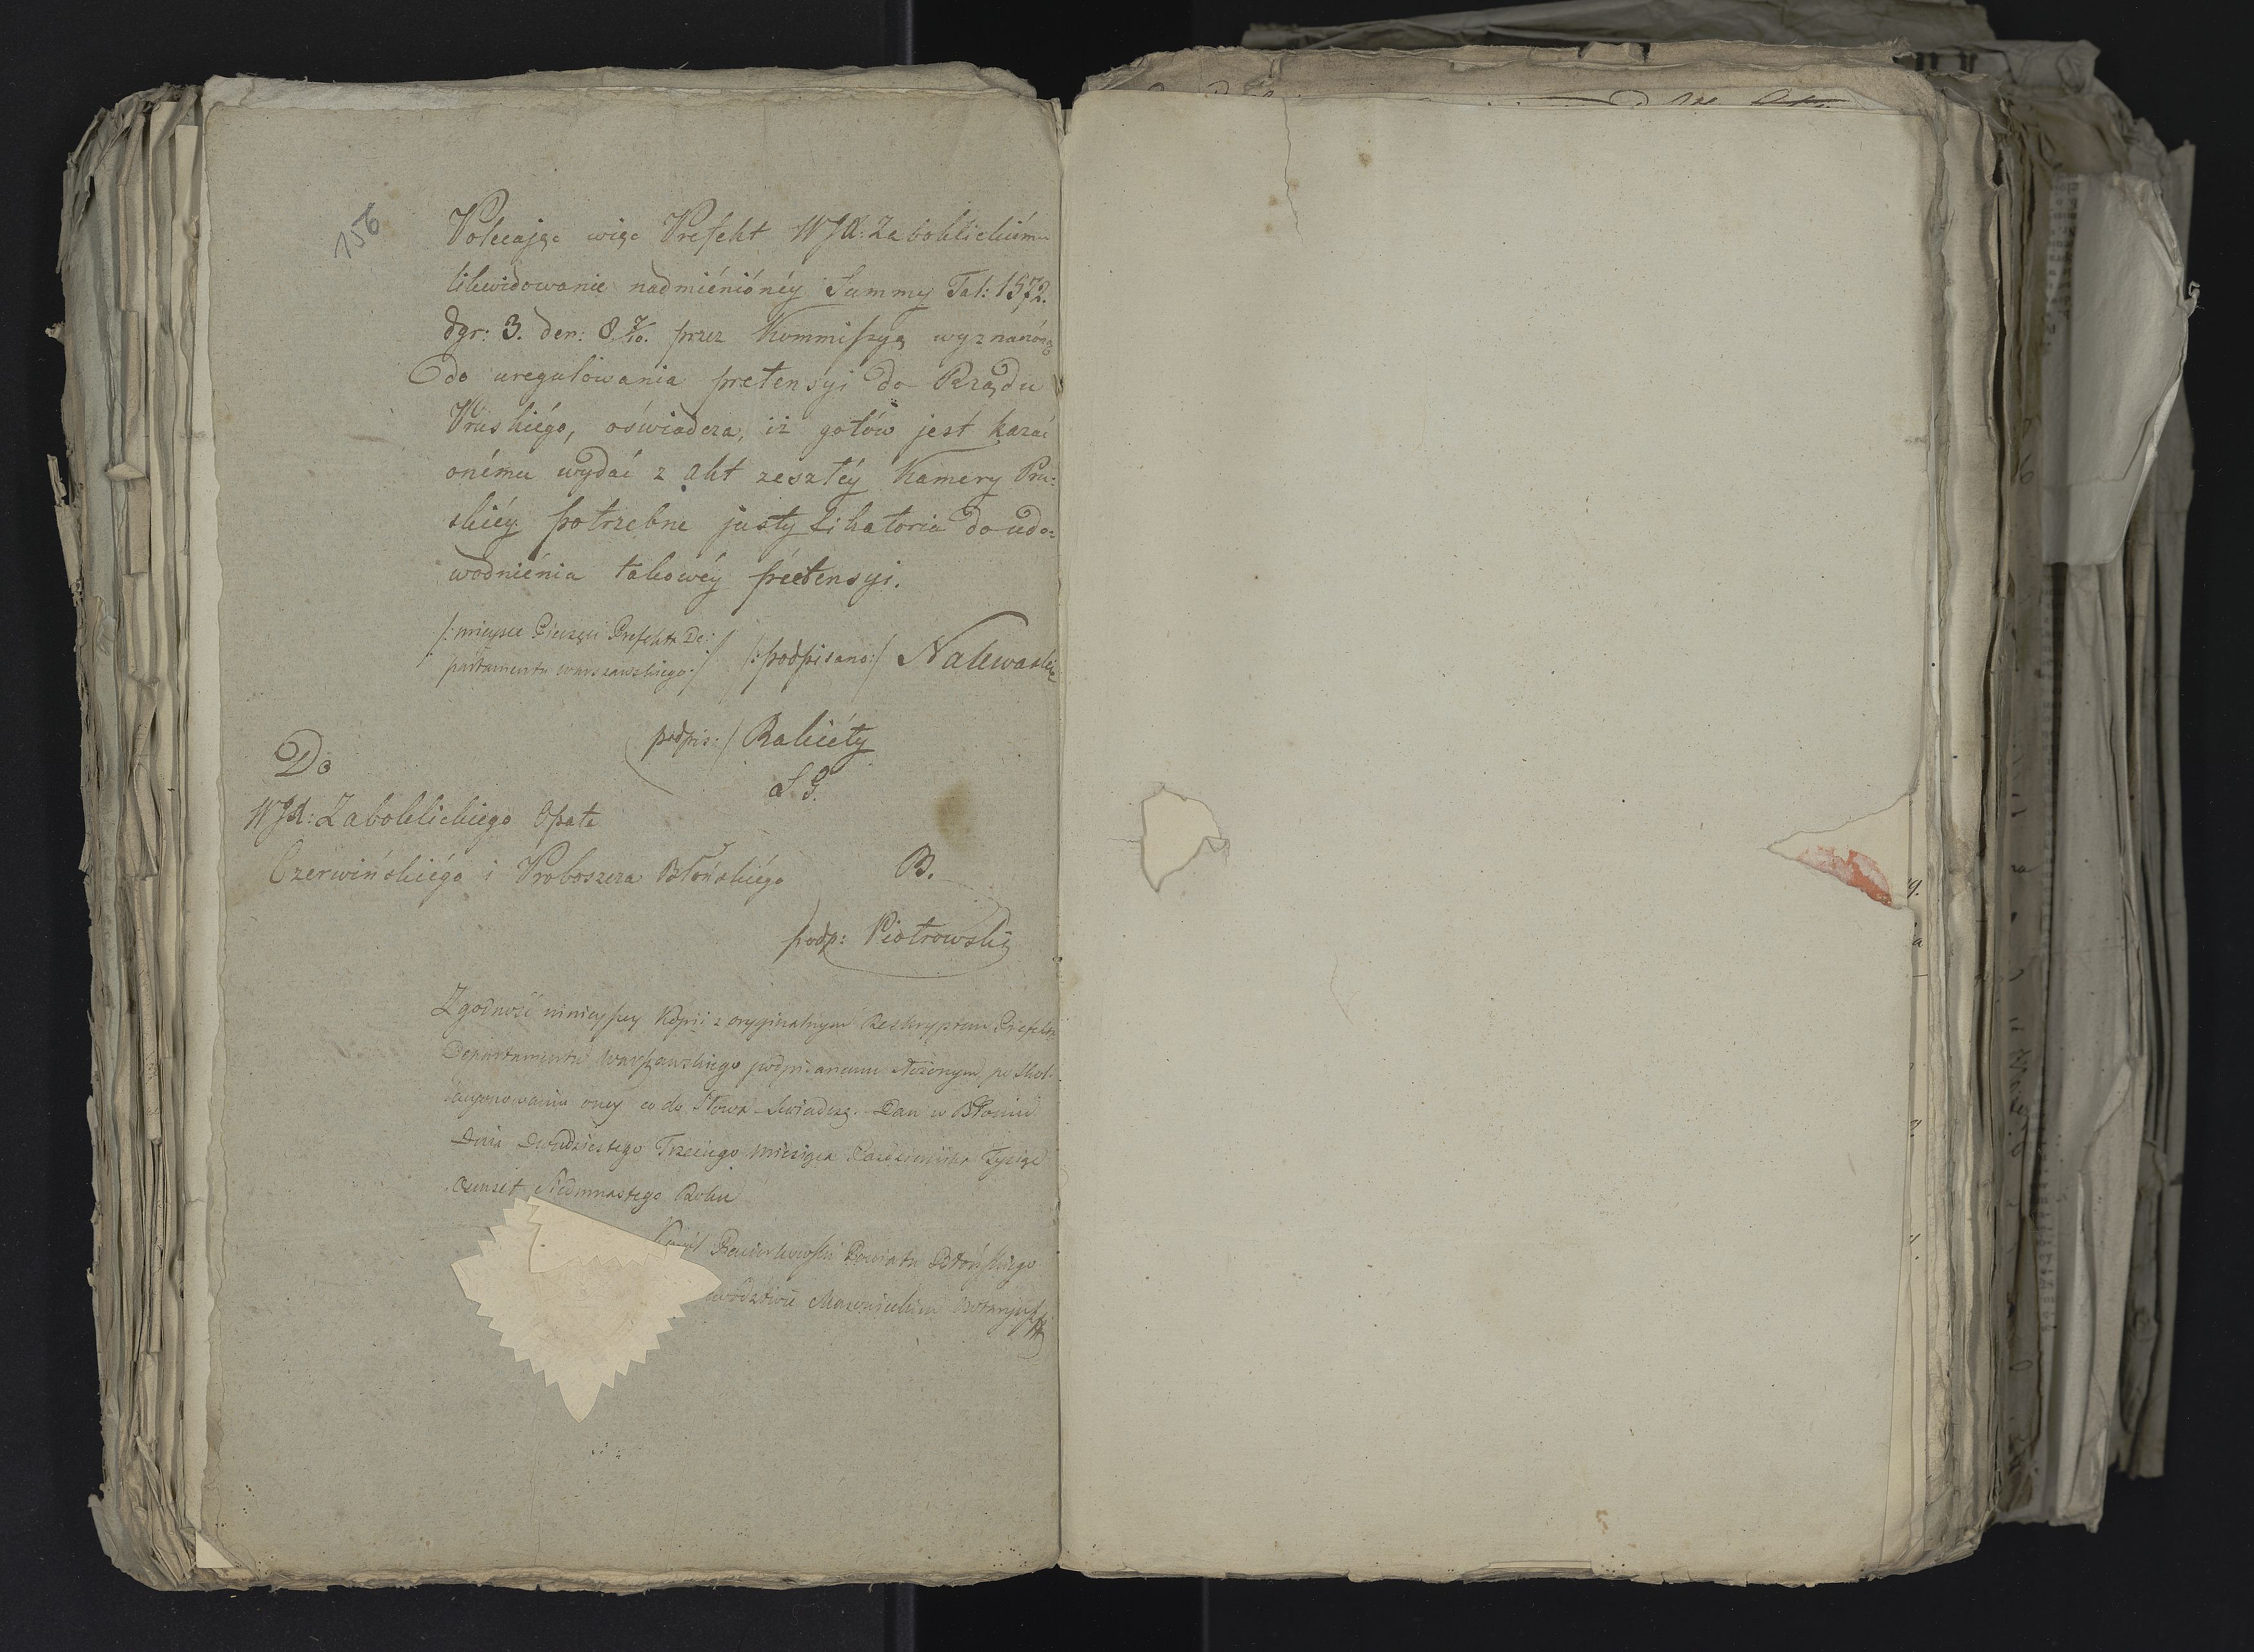 156
Polecając więc Prefekt WJX: Zaboklickiému
likwidowanie nadmiénionéy Summy Tal: 1572.
dgr: 3. den: 8 7/10. przez Kommissyą wyznaczoną
do uregulowania pretensyi do Rządu
Pruskiégo, oświadcza, iż gotów jest kazać
onému wydać z akt zeszłéy Kamery Pru:
skiéy potrzebne justyfikatoria do udo=
wodniénia takowéy prétensyi.
/: mieysce Pieczęci Prefekta De:
partamentu Warszawskiego :/
/: podpisano :/ Nakwaski
podpis: / Rakiéty
S. G.
Do
WJX: Zaboklickiego Opata
Czerwińskiégo i Proboszcza Błońskiégo
B.
podp: Piotrowski
Zgodność ninieyszey Kopii z oryginalnym Reskryptem Prefekta
Departamentu Warszawskiego podpisanemu złożonym po skol-
lacyonowaniu oney co do Słowa Swiadczę. Dan w Błoniu
Dnia Dwudziestego Trzeciego Miesiąca Października Tysiąc
Osmset Siedmnastego Roku
Powiatu Błońskiego
wodztwie Mazowieckim Notaryusz